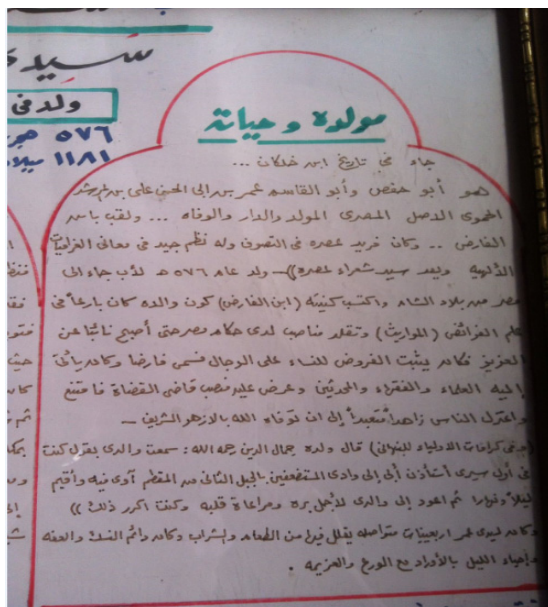 سيدى
ولد فى
٥٧٦ هجر
١١٨١ ميلاد
مولده وحياته
جاء فى تاريخ ابن خلكان ...
هو أبو حفص وأبو القاسم عمر بن ابى الحسن على بن مرشد
الحموى الاصل المصرى المولد والدار والوفاه ... ولقب باسم
الفارض .. وكان فريد عصره فى التصوف وله نظم جيد فى معانى الغراميات
الألهيه ويعد سيد شعراء عصره)) - ولد عام ٥٧٦ هـ لأب جاء الى
مصر من بلاد الشام واكتسب كنيته (ابن الفارض) كون والده كان بارعاً فى
علم الفرائض (المواريث) وتقلد مناصب لدى حكام مصر حتى أصبح نائبا عن
العزيز فكان يثبت الفروض للنساء على الرجال فسمى فارضا وكان يأتى
إليه العلماء والفقهاء والمحدثين وعرض عليه منصب قاضى القضاة فامتنع
واعتزل الناس زاهداً متعبداً إلى ان توفاه الله بالازهر الشريف -
(وفى كرامات الاولياء للنبهانى) قال ولده جمال الدين رحمه الله : سمعت والدى يقول كنت
فى أول سيرى أستأذن أبى إلى وادى المستضعفين بالجبل الثانى من المقطم آوى فيه وأقيم
ليلاً ونهارا ثم اعود إلى والدى لأجل بره ومراعاة قلبه وكنت اكرر ذلك ))
وكان لسيدى عمر اربعينيات متواصله يقلل فيها من الطعام والشراب وكان دائم النسك والعفه
وإحياء الليل بالأوراد مع الورع والعزيمه .